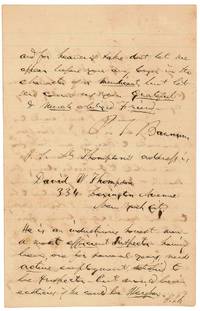 and for heaven's sake don't let me
appear before you any longer in the
character of a but let
me your Grateful
& Much obliged friend
P. T. Barnum
P.S. Thompson's address is
David W Thompson
334 Lexington Avenue
New York City
He is an industrious honest man
& a most efficient Inspector having
been one for several years, needs
active employment
be Inspector, but would
if he could be